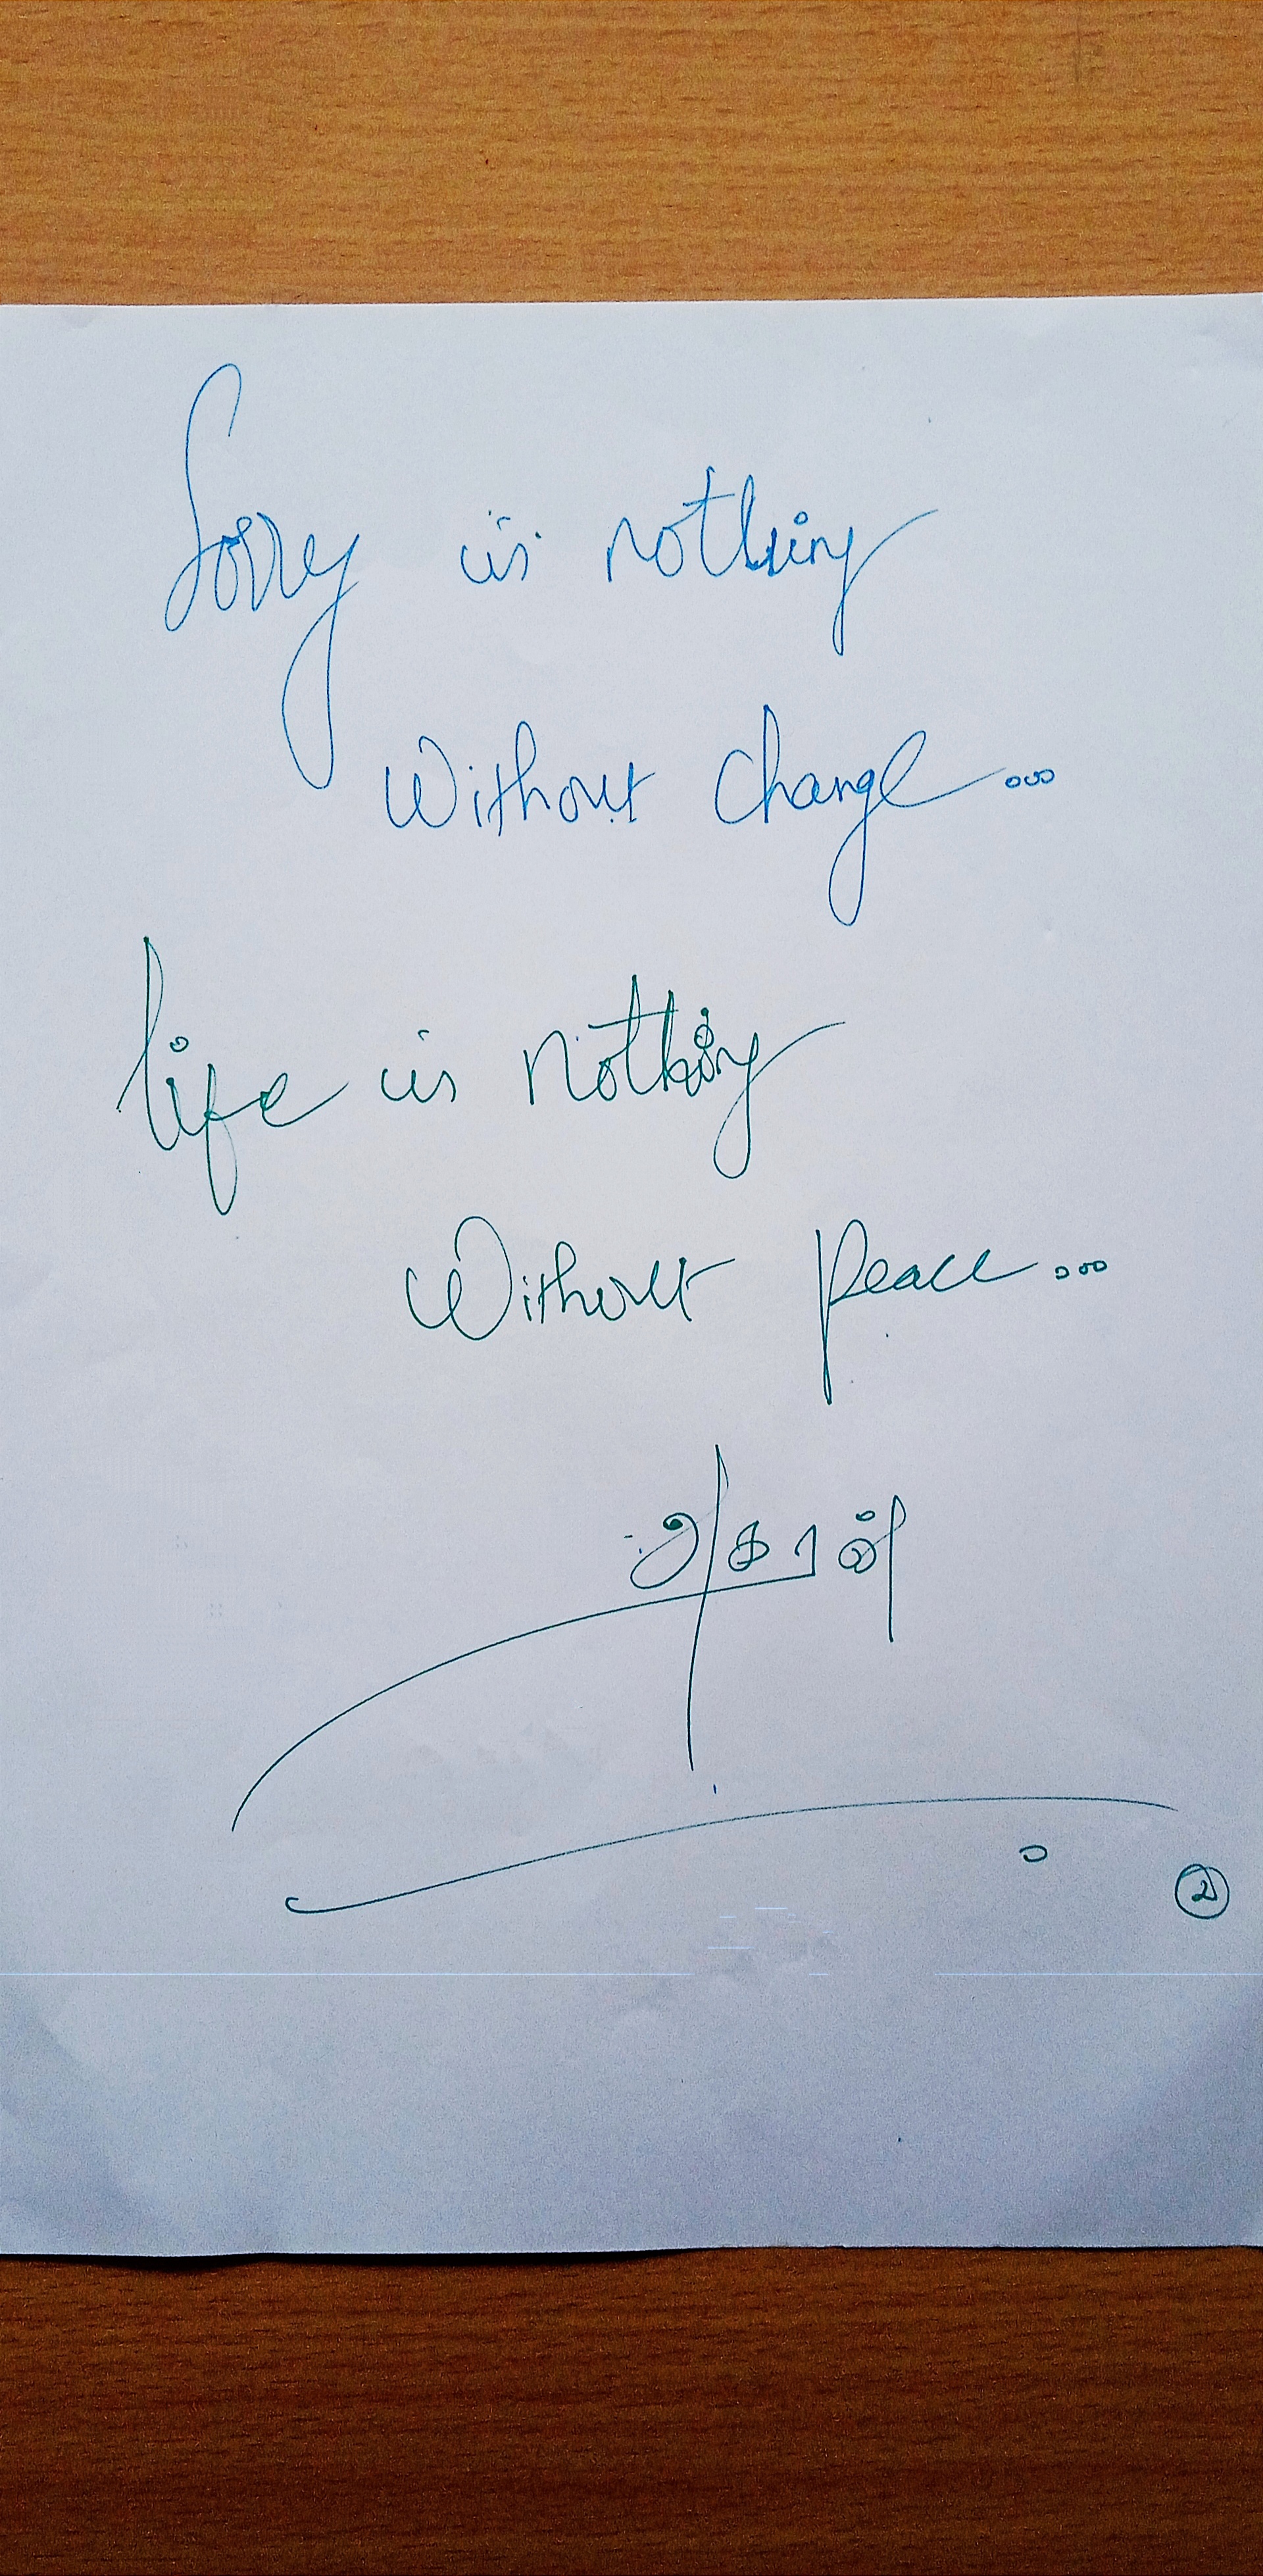 Sorry is nothing
without change...
life is nothing
without peace...
அகரன்
2